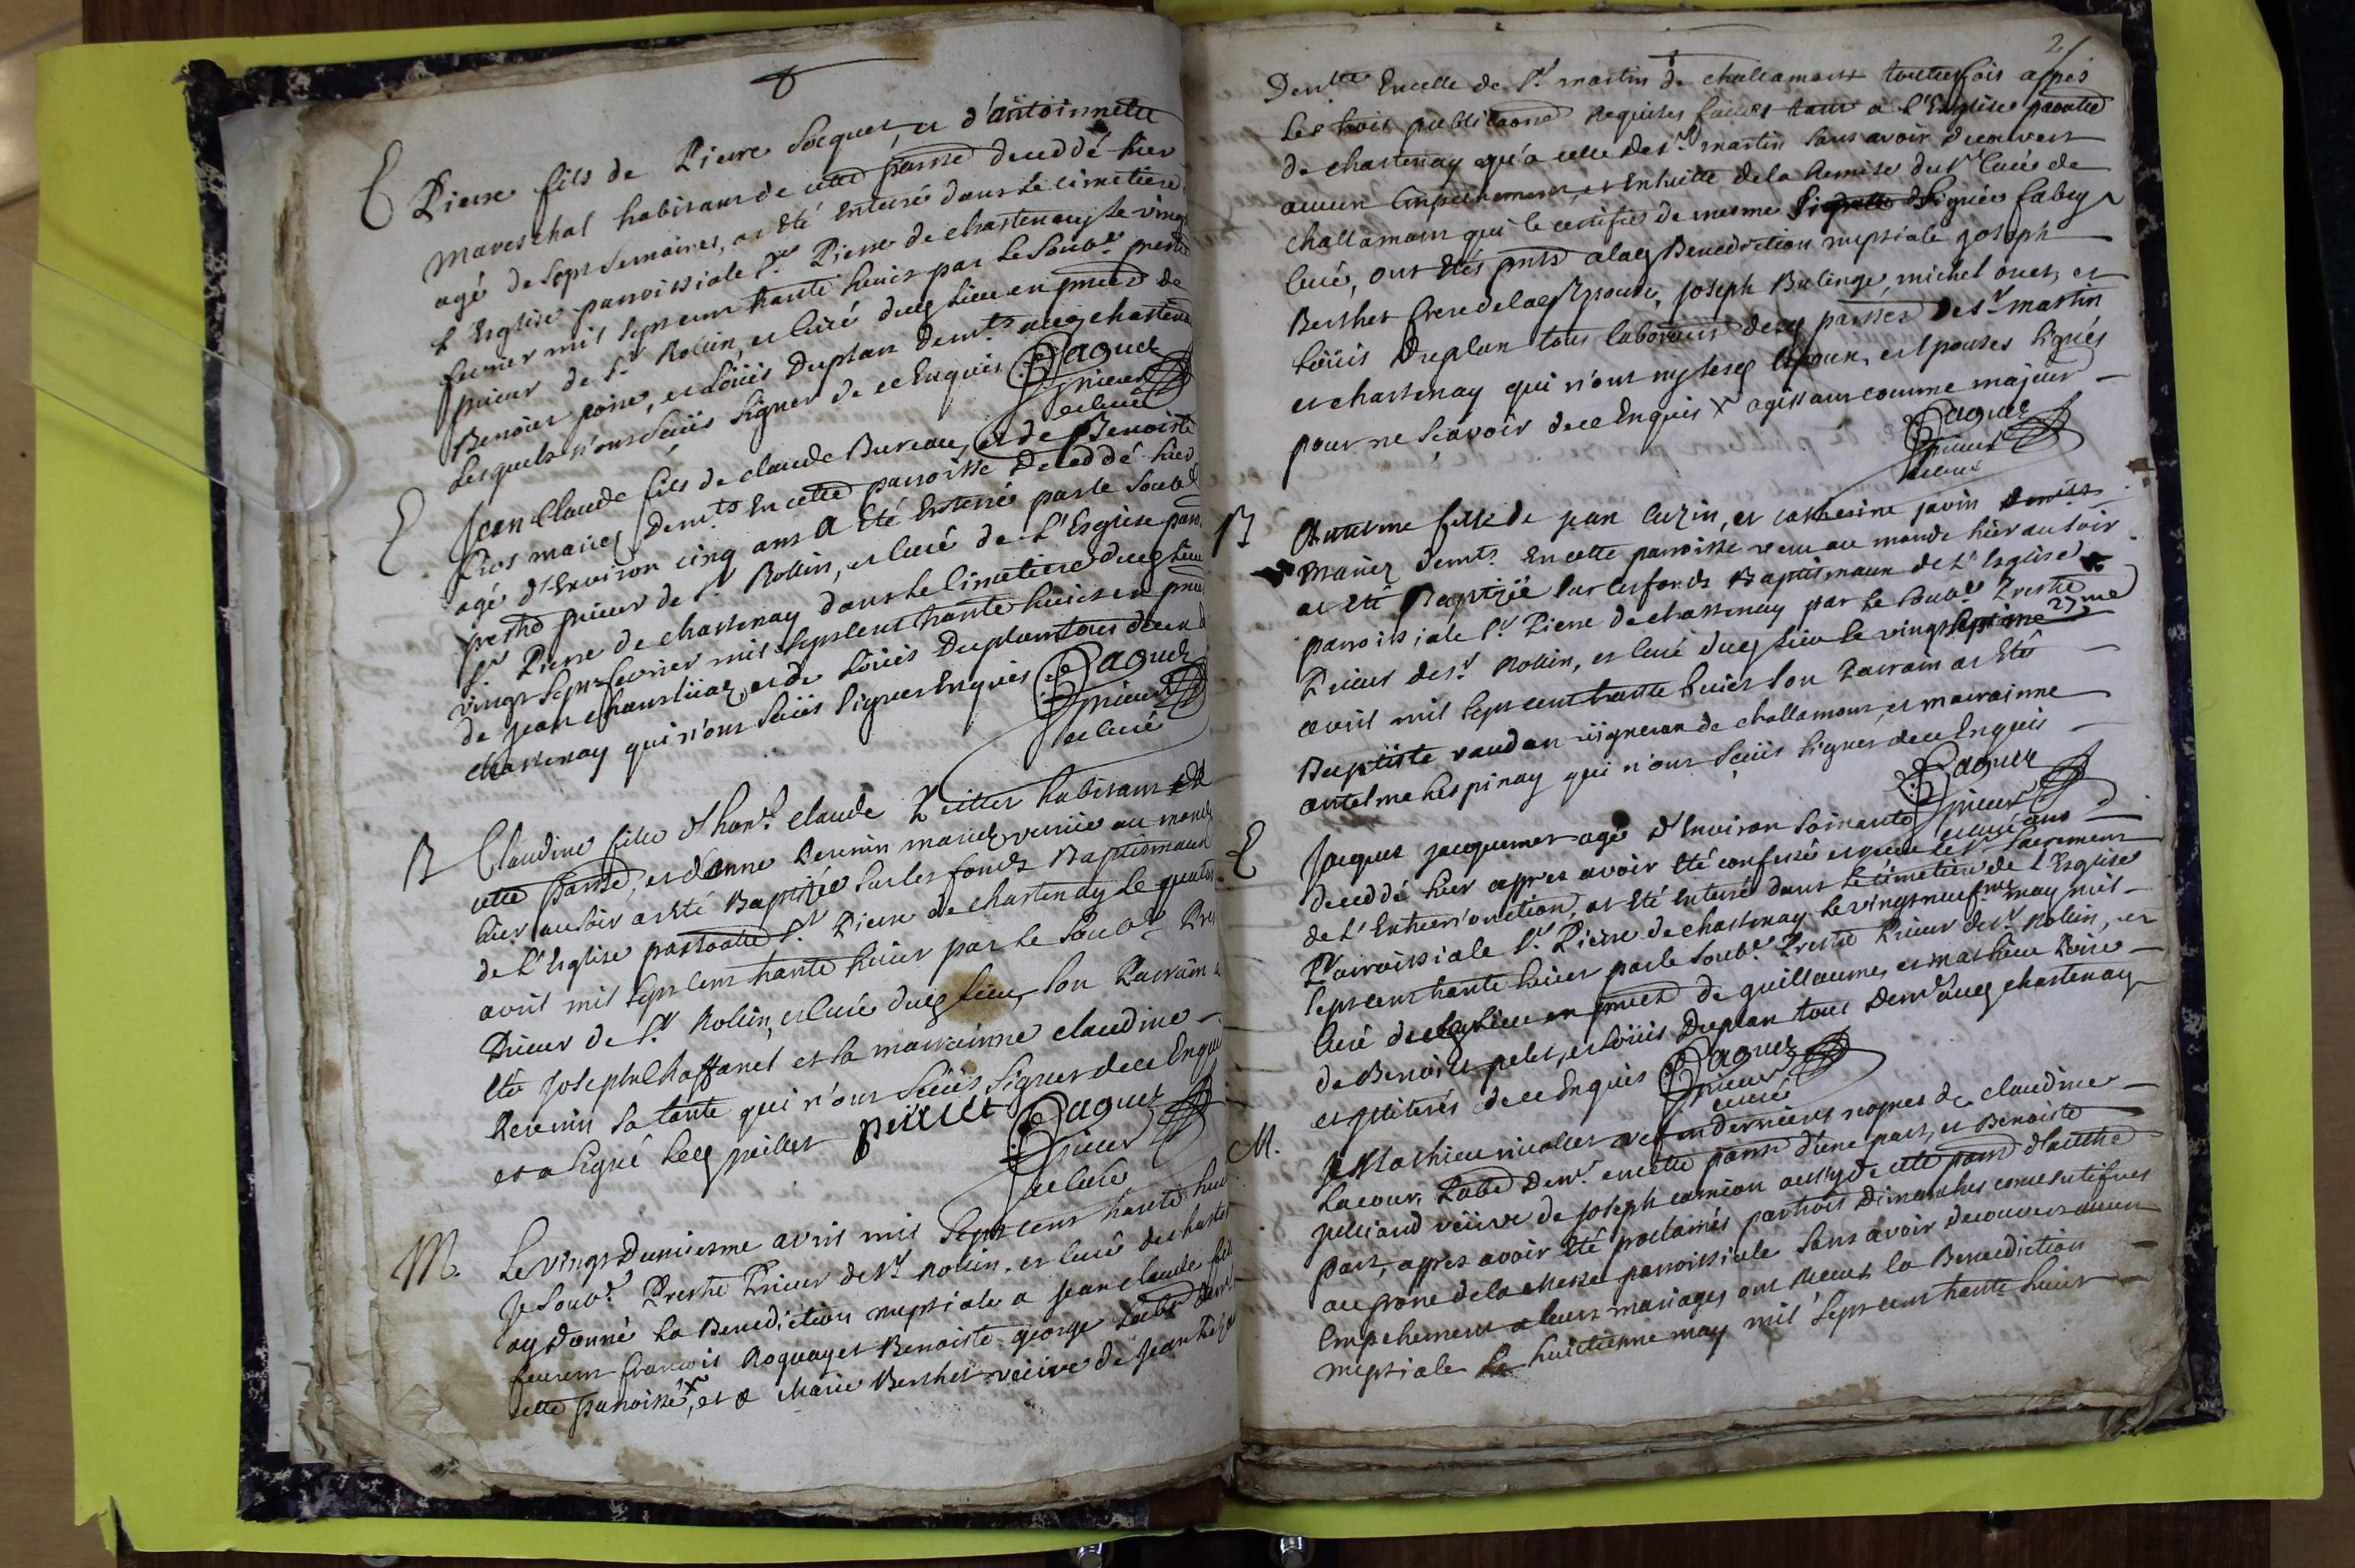 E Pierre fils de Pierre Socquet, et d'antoinnette
mareschal habitans de cette parrsse deceddé hier
agé de sept semaines, at Eté Enterré dans le cimetiere
L'Esglise parroissiale St. Pierre de chastenay le vingt
fevrier mil sept cent trante huict par le soubé. prestre
prieur de St. Rollin, et curé ducq lieu en prnce de
Benoict poire, et Loüis Duplan demts. aucq chastenay
Lesquels n'ont sceüs signer de ce Enquis Paguet
prieur
et curé
E Jean Claude fils de claude Bureau, et de Benoiste
mariez Demts. En cette parroisse Deceddé hier
agé d'Environ cinq ans A Eté Enterré par le soubé.
prestre prieur de St. Rollin, et curé de L'Esglise parr.
St. Pierre de chastenay dans le cimetiere ducq lieu
vingt sept fevrier mil sept cent trante huict en prnce
de jean et de Loüis Duplan tous deux de
chastenay qui n'ont sceüs signer Enquis Paguet
prieur
et curé
B Claudine fille d'hont. claude Peillet habitant de
cette parrsse, et d'anne Revenin mariez venüe au monde
hier au soir at Eté Baptizée sur les fonds Baptismaux
de L'Esglise St. Pierre de chastenay le quator
avril mil sept cent trante huict par le soubé. Pres
Prieur de St. Rollin, et curé ducq lieu, son Parrain a
Eté Joseph Chaffanel et la marrainne claudine
Revenin sa tante qui n'ont sceüs signer de ce Enquis
et a signé lecq peillet peillet Paguet
prieur
et curé
M. Le vingt Deuxiesme avril mil sept cent trante huict
Je soubé. Prestre Prieur de St. Rollin, et curé de chasten
ay donné la Benediction nuptiale a jean claude fils
feurent francois Roquayet Benoiste george Labr demt
cette parroisse, x et a Marie Berthet veüive de Jean
2
Demte. En celle de St. martin de challamont toutesfois aprés
Les trois publicaons requises faictes tant a l'Esglise
de chastenay qu'a celle de St. martin sans avoir decouvert
aucun Empechement, et Ensuitte de la Remise du Sr. Curé de
challamont qui le certifie de mesme signée fabry
curé, ont Etés prnts. alacq Benediction nuptiale joseph
Berthet frere de lacq Epouse, joseph Bulinge, michel ouet, et
Loüis Duplan tous laboureurs desq. parrsses De St. martin
et chastenay qui n'ont ny lesq Epoux, et Epouses signés
pour ne sçavoir de ce Enquis x agissant comme majeur
Paguet
prieur
et curé
B Antelme fille de jean Cuzin, et catherine javin
Mariez demts. En cette parroisse venu au monde hier au soir
at Eté Baptizée sur les fonds Baptismaux de L'Esglise
parroissiale St. Pierre de chastenay par le soubé. Prestre
Prieur de St. Rollin, et curé ducq lieu le vingt septieme 27me
avril mil sept cent trante huict son Parrain at Eté
Baptiste vaudan vigneron de challamont, et marrainne
antelme Lespinay qui n'ont sceüs signer de ce Enquis
Paguet
prieur
et curé
E Jacques jacquemet agé d'Environ soixante ans
deceddé hier apprés avoir Eté confessé et receu le St. Sacrement
de L'Extreme onction, at Eté Enterré dans le cimetiere de L'Esglise
Parroissiale St. Pierre de chastenay le vingt neufme. may mil
sept cent trante huict par le soubé. Prestre Prieur de St. Rollin, et
Curé ducq lieu en prnce de guillaume, et mathieu Poire
de Benoict pelet, et Loüis Duplan tous Demt. aucq chastenay
et illiterés de ce Enquis Paguet
prieur
et curé
M. Mathieu nicollet vef en dernieres nopces de claudine
Lacour, Labr Demt. en cette parrsse d'une part, et Benoiste
julliand veüive de joseph camion aussy de cette parrsse d'autre
part, apprés avoir Eté proclamés par trois Dimanches consecutifves
au prone de la Messe parroissiale sans avoir decouvert aucun
Empechement a leurs mariages, ont Receus la Benediction
nuptiale Le huictienne may mil sept cent trante huict